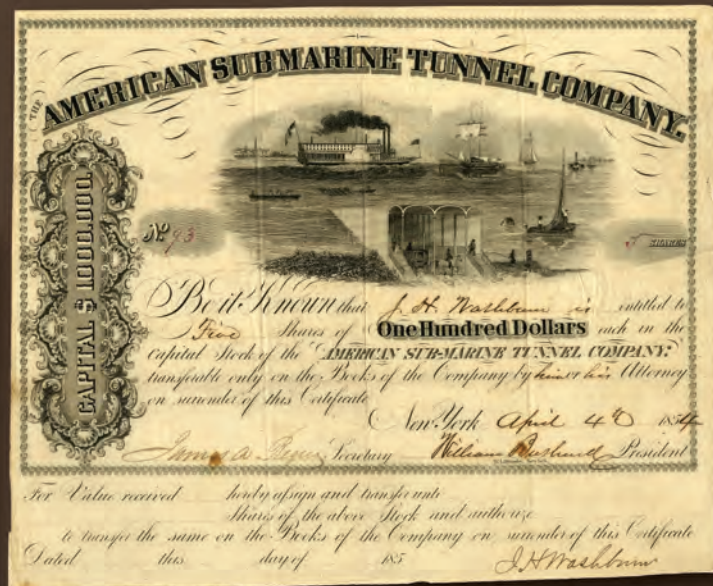 THE
AMERICAN SUBMARINE TUNNEL COMPANY.
CAPITAL $1,000,000.
No 93
5 SHARES
Be it Known that J. H. Washburn is entitled to
Five Shares of One Hundred Dollars each in the
Capital Stock of the "AMERICAN SUB-MARINE TUNNEL COMPANY."
transferable only on the Books of the Company by him or his Attorney
on surrender of this Certificate
New York April 4th 1854
James A Secretary William President
For Value received hereby assign and transfer unto
Shares of the above Stock and authorize
to transfer the same on the Books of the Company on surrender of this Certificate
Dated this day of 185
J. H Washburn